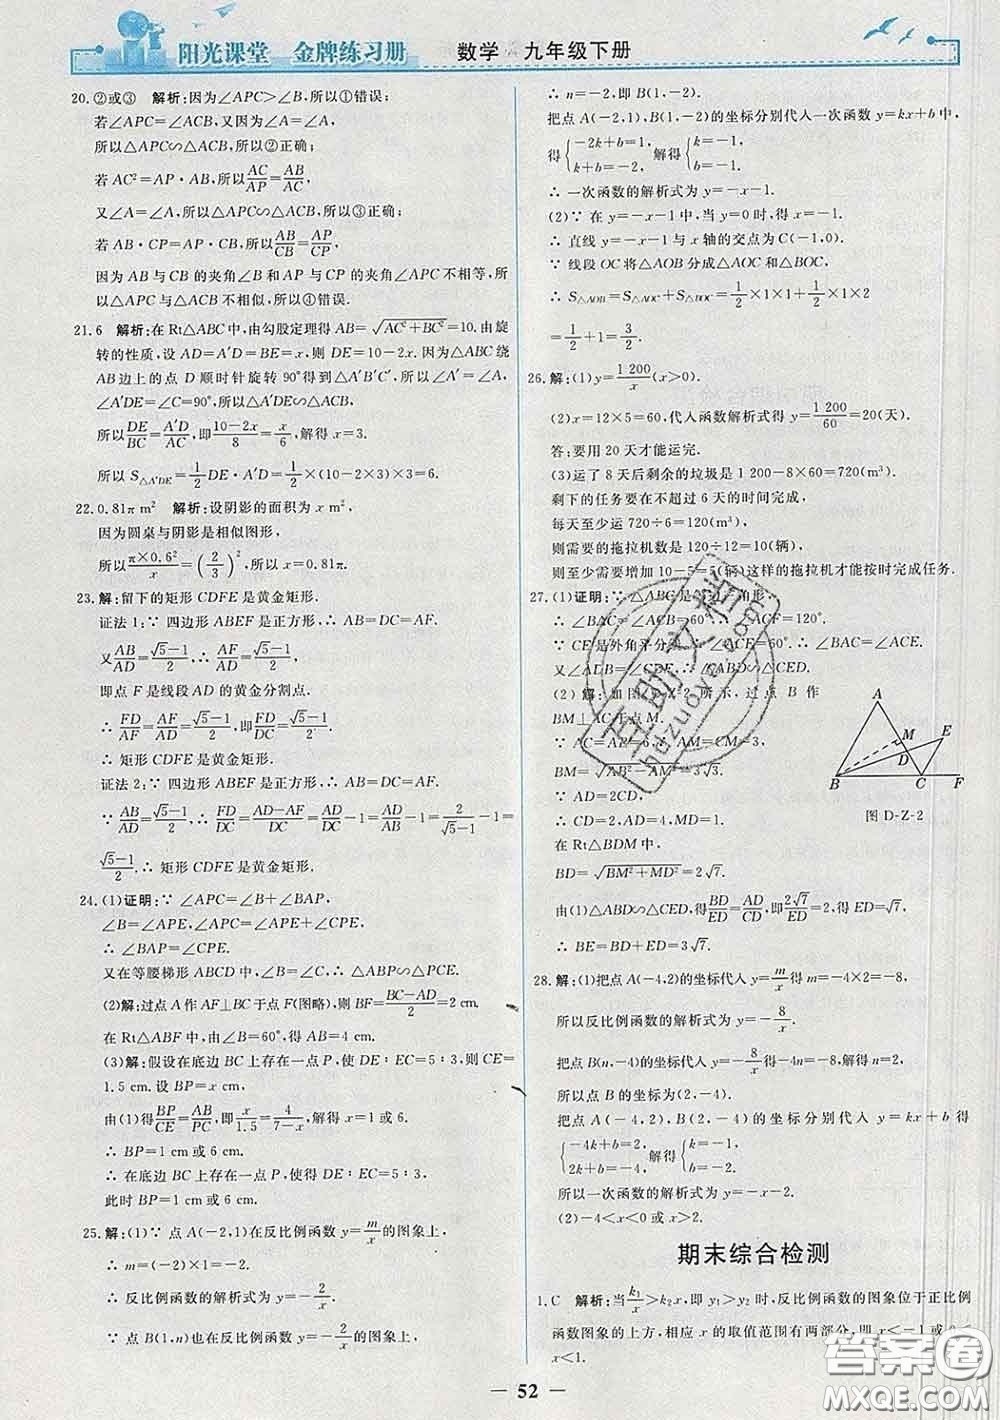 阳光课堂 金牌练习册 数学·九年级下册
20.②或③ 解析:因为∠APC>∠B,所以①错误;
若∠APC=∠ACB,又因为∠A=∠A,
所以△APC∽△ACB,所以②正确;
若 AC²=AP·AB,所以AC/AP=AB/AC,
又∠A=∠A,所以△APC∽△ACB,所以③正确;
若 AB·CP=AP·CB,所以AB/CB=AP/CP,
因为 AB 与 CB 的夹角∠B和 AP 与 CP 的夹角∠APC 不相等,所以△APC与△ACB 不相似,所以④错误.
21.6 解析:在 Rt△ABC 中,由勾股定理得 AB=√(AC²+BC²)=10.由旋
转的性质,设 AD=A′D=BE=x,则 DE=10-2x.因为△ABC 绕
AB 边上的点 D 顺时针旋转 90°得到△A′B′C′,所以∠A′=∠A,
∠A′DE=∠C=90°,所以△A′DE∽△ACB,
所以DE/BC=A′D/AC,即(10-2x)/8=x/6,解得 x=3.
所以 S△A′DE=1/2DE·A′D=1/2×(10-2×3)×3=6.
22.0.81π m² 解析:设阴影的面积为 x m²,
因为圆桌与阴影是相似图形,
所以π×0.6²/x=(2/3)²,所以 x=0.81π.
23.解:留下的矩形 CDFE 是黄金矩形.
证法 1:∵ 四边形 ABEF 是正方形,∴ AB=AF.
又AB/AD=(√5-1)/2,∴ AF/AD=(√5-1)/2,
即点 F 是线段 AD 的黄金分割点.
∴ FD/AF=AF/AD=(√5-1)/2,∴ FD/DC=(√5-1)/2.
∴ 矩形 CDFE 是黄金矩形.
证法 2:∵ 四边形 ABEF 是正方形,∴ AB=AF.
∵ AB/AD=(√5-1)/2,∴ FD/DC=(AD-AF)/DC=AD/DC-AF/DC=AD/AB-1=2/(√5-1)-1=
(√5-1)/2.∴ 矩形 CDFE 是黄金矩形.
24.(1)证明:∵ ∠APC=∠B+∠BAP,
∠B=∠APE,∠APC=∠APE+∠CPE,
∴ ∠BAP=∠CPE.
又在等腰梯形 ABCD 中,∠B=∠C,∴ △ABP∽△PCE.
(2)解:过点 A 作 AF⊥BC 于点 F(图略),则 BF=(BC-AD)/2=2 cm.
在 Rt△ABF 中,由∠B=60°,得 AB=4 cm.
(3)解:假设在底边 BC 上存在一点 P,使 DE∶EC=5∶3,则 CE=
1.5 cm.设 BP=x cm,
由(1)得BP/CE=AB/PC,即x/1.5=4/(7-x),解得 x=1 或 6.
∴ BP=1 cm 或 6 cm.
∴ 在底边 BC 上存在一点 P,使得 DE∶EC=5∶3,
此时 BP=1 cm 或 6 cm.
25.解:(1)∵ 点 A(-2,1)在反比例函数 y=m/x的图象上,
∴ m=(-2)×1=-2.
∴ 反比例函数的解析式为 y=-2/x.
∵ 点 B(1,n)也在反比例函数 y=-2/x的图象上,
∴ n=-2,即 B(1,-2).
把点 A(-2,1),B(1,-2)的坐标分别代入一次函数 y=kx+b 中,
得{-2k+b=1, k+b=-2. 解得{k=-1, b=-1.
∴ 一次函数的解析式为 y=-x-1.
(2)∵ 在 y=-x-1 中,当 y=0 时,得 x=-1.
∴ 直线 y=-x-1 与 x 轴的交点为 C(-1,0).
∵ 线段 OC 将△AOB 分成△AOC 和△BOC,
∴ S△AOB=S△AOC+S△BOC=1/2×1×1+1/2×1×2
=1/2+1=3/2.
26.解:(1)y=1 200/x(x>0).
(2)x=12×5=60,代入函数解析式得 y=1 200/60=20(天).
答:要用 20 天才能运完.
(3)运了 8 天后剩余的垃圾是 1 200-8×60=720(m³).
剩下的任务要在不超过 6 天的时间完成,
每天至少运 720÷6=120(m³),
则需要的拖拉机数是 120÷12=10(辆),
则至少需要增加 10-5=5(辆)这样的拖拉机才能按时完成任务.
27.(1)证明:∵ △ABC 是等边三角形,
∴ ∠BAC=∠ACB=60°,∠ACF=120°.
∵ CE是外角平分线,∴ ∠ACE=60°,∴ ∠BAC=∠ACE.
又∠ADB=∠CDE,∴ △ABD∽△CED.
(2)解:如图 D-Z-2 所示,过点 B 作
BM⊥AC于点 M.
∵ AC=AB=6,∴ AM=CM=3,
BM=√(AB²-AM²)=3√3.
∵ AD=2CD,
∴ CD=2,AD=4,MD=1.
在 Rt△BDM 中,
BD=√(BM²+MD²)=2√7.
由(1)△ABD∽△CED,得BD/ED=AD/CD,即2√7/ED=2,得 ED=√7,
∴ BE=BD+ED=3√7.
A
M
E
D
B
C
F
图 D-Z-2
28.解:(1)把点 A(-4,2)的坐标代入 y=m/x得 m=-4×2=-8,
所以反比例函数的解析式为 y=-8/x.
把点 B(n,-4)的坐标代入 y=-8/x得-4n=-8,解得 n=2,
所以点 B 的坐标为(2,-4).
把点 A(-4,2),B(2,-4)的坐标分别代入 y=kx+b 得
{-4k+b=2, 2k+b=-4. 解得{k=-1, b=-2.
所以一次函数的解析式为 y=-x-2.
(2)-4<x<0 或 x>2.
期末综合检测
1.C 解析:当k₁/x>k₂x,即 y₁>y₂ 时,反比例函数的图象位于正比例
函数图象的上方,相应 x 的取值范围有两部分,即
x<1.
52
答案圈
MXQE.COM